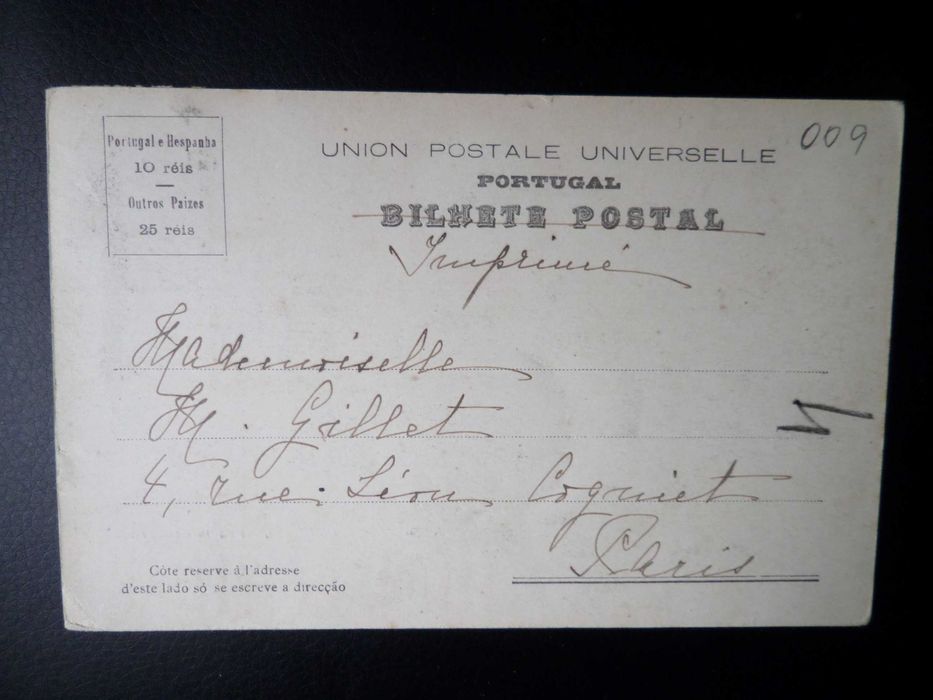 Portugal e Hespanha
10 réis
Outros Paizes
25 réis
UNION POSTALE UNIVERSELLE
PORTUGAL
BILHETE POSTAL
Imprimé
009
Mademoiselle
M. Gillet
4, rue Léon Cogniet
Paris
Côte reserve â l'adresse
d'este lado só se escreve a direcção